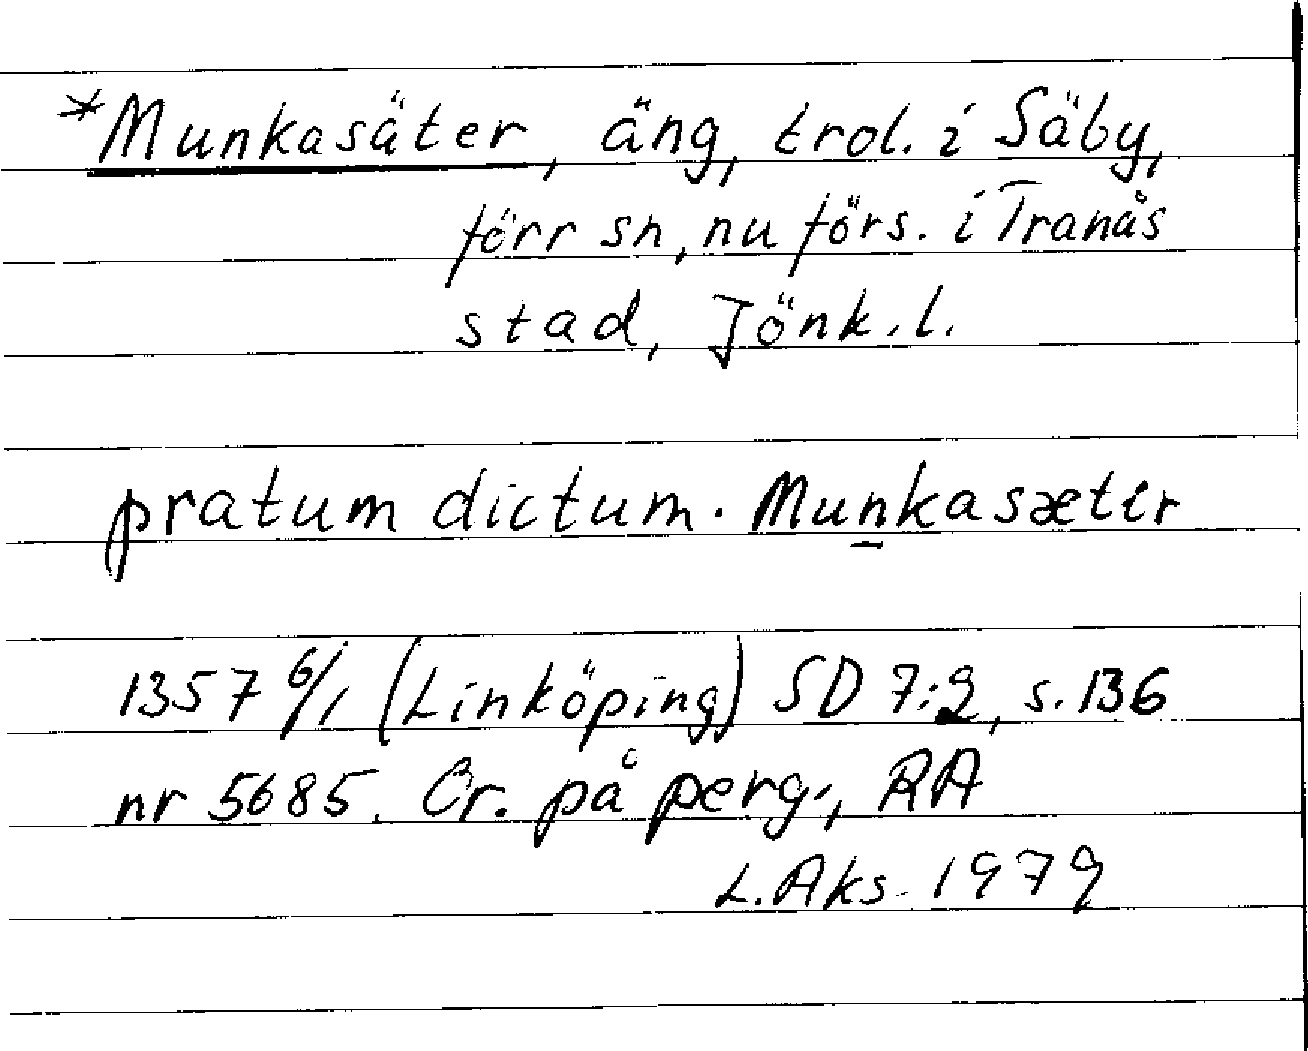 *Munkasäter, äng, trol. i Säby,
förr sn, nu förs. i Tranås
stad, Jönk. l.
pratum dictum. Munkasætir
1357 6/1 (Linköping) SD 7:2, s. 136
nr 5685. Or. på perg., RA
L. Aks. 1979